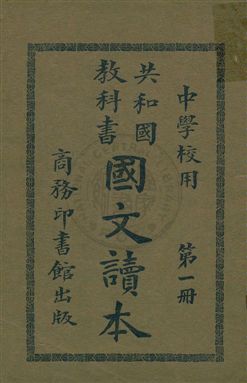 中學校用 第一冊
共和國
教科書
國文讀本
商務印書館出版